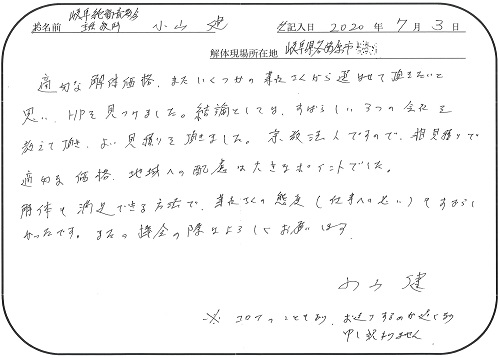 お名前 岐阜純福音教会 主任牧師 小山 健 ご記入日 2020年7月3日
解体現場所在地 岐阜県各務原市
適切な解体価格、またいくつかの業者さんから選ばせて頂きたいと
思い、HPを見つけました。結論としては、すばらしい3つの会社を
教えて頂き、よい見積りを頂きました。宗教法人ですので、相見積りで
適切な価格、地域への配慮は大きなポイントでした。
解体も満足できる方法で、業者さんの態度(仕事への思い)もすばらし
かったです。またの機会の際はよろしくお願いします。
小山 健
※ コロナのこともあり、お送りするのが遅くなり
申し訳ありません。